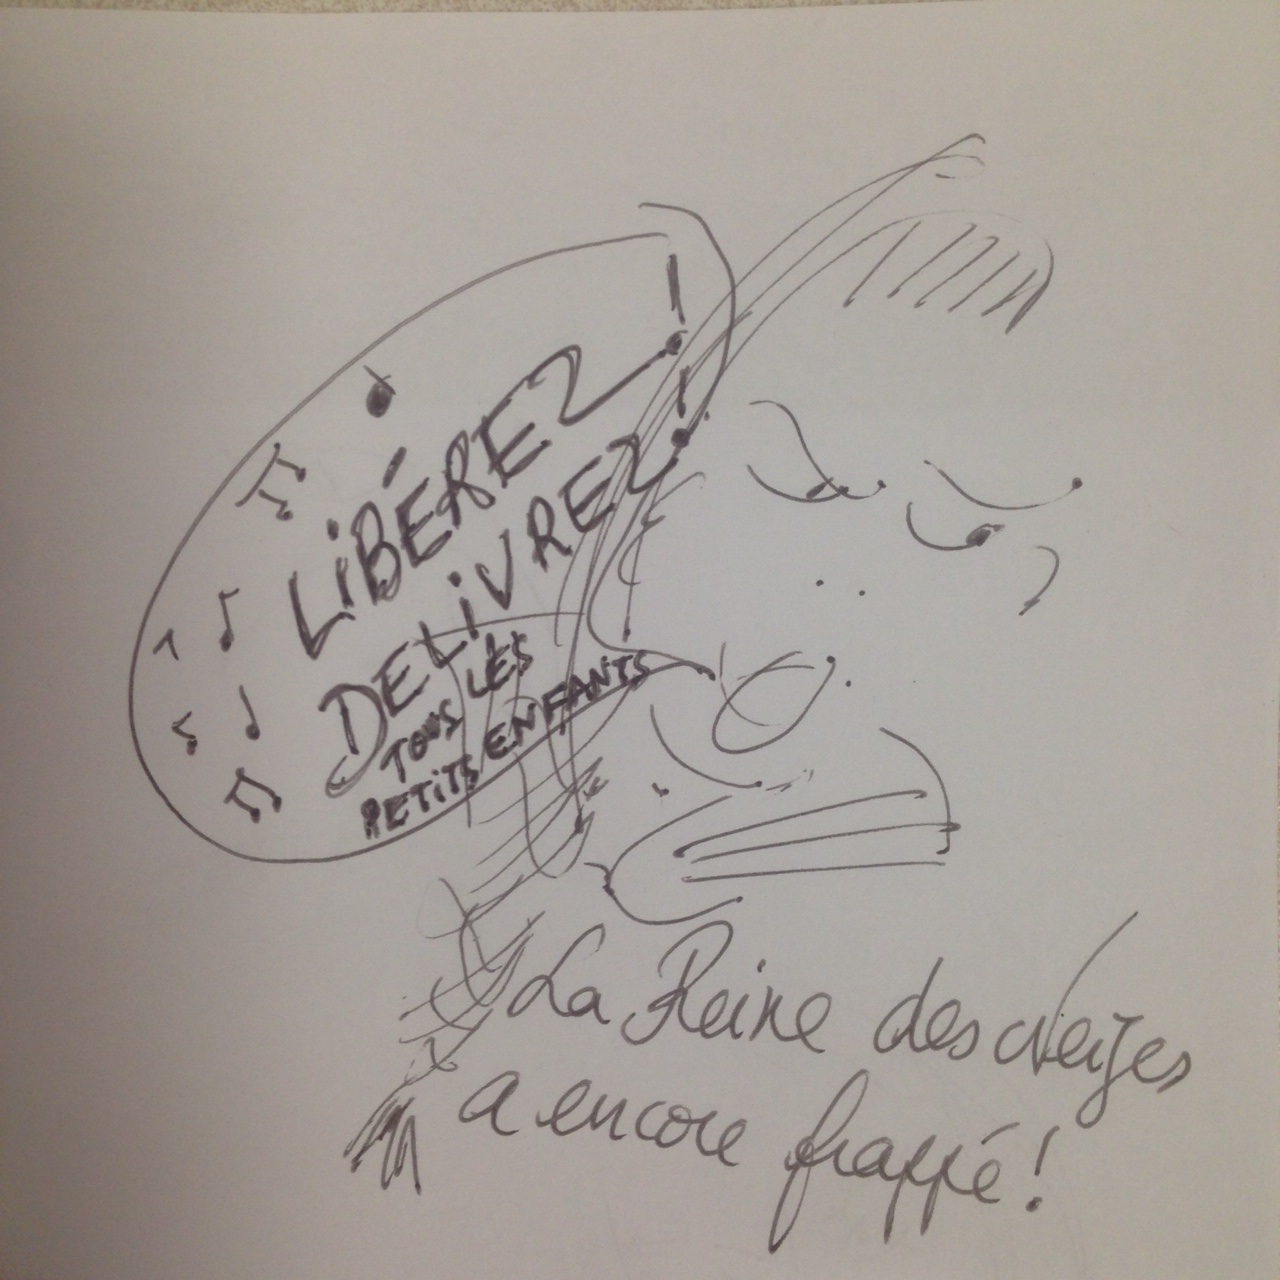 LIBÉREZ!
DELIVREZ!
TOUS LES
PETITS ENFANTS
La Reine des Neiges
a encore frappé!